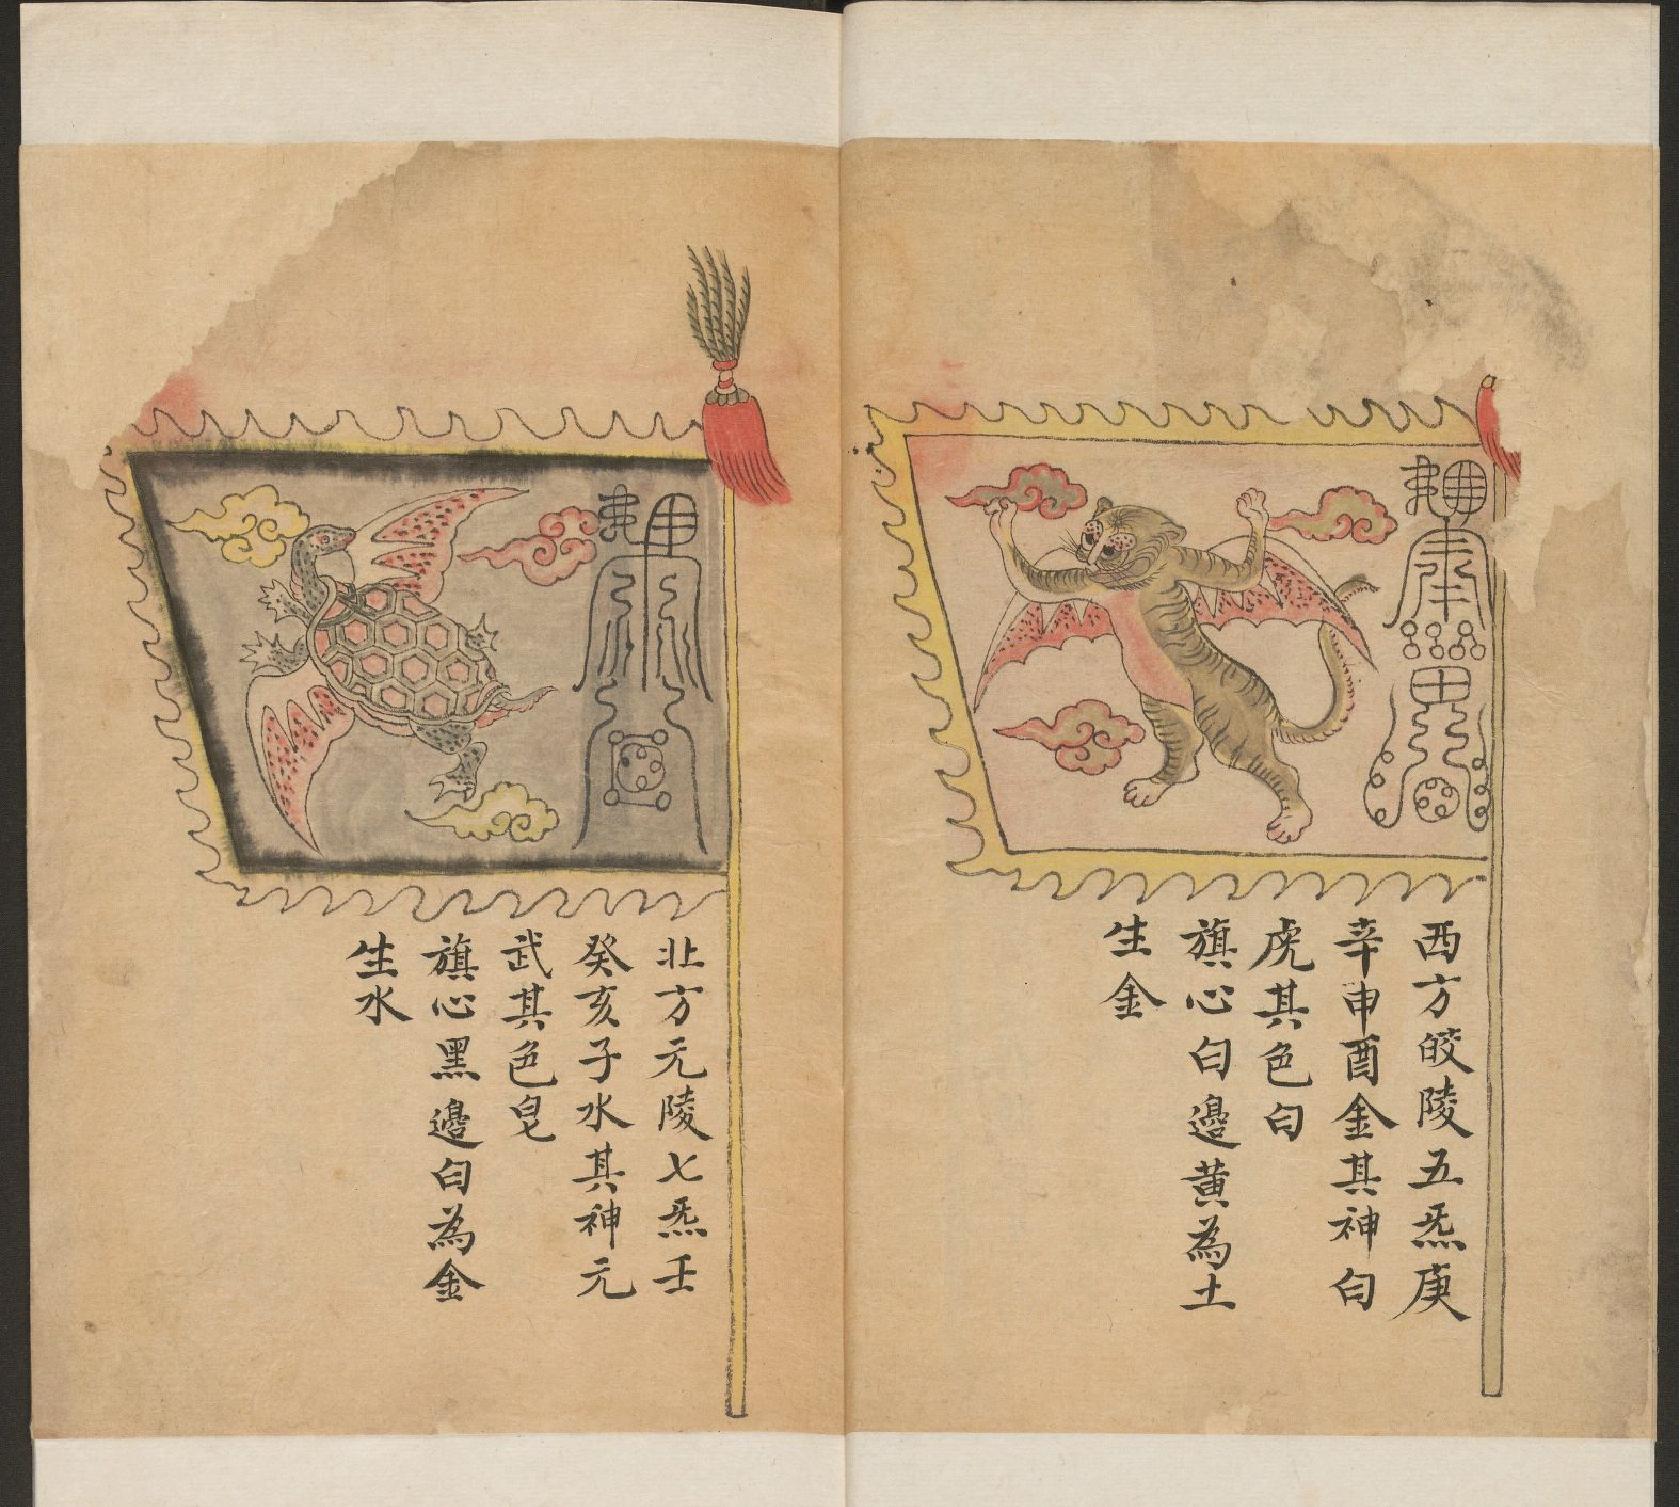 西方皎陵五炁庚
辛申酉金其神白
虎其色白
旗心白邊黄為土
生金
北方元陵七炁壬
癸亥子水其神元
武其色皂
旗心黑邊白為金
生水